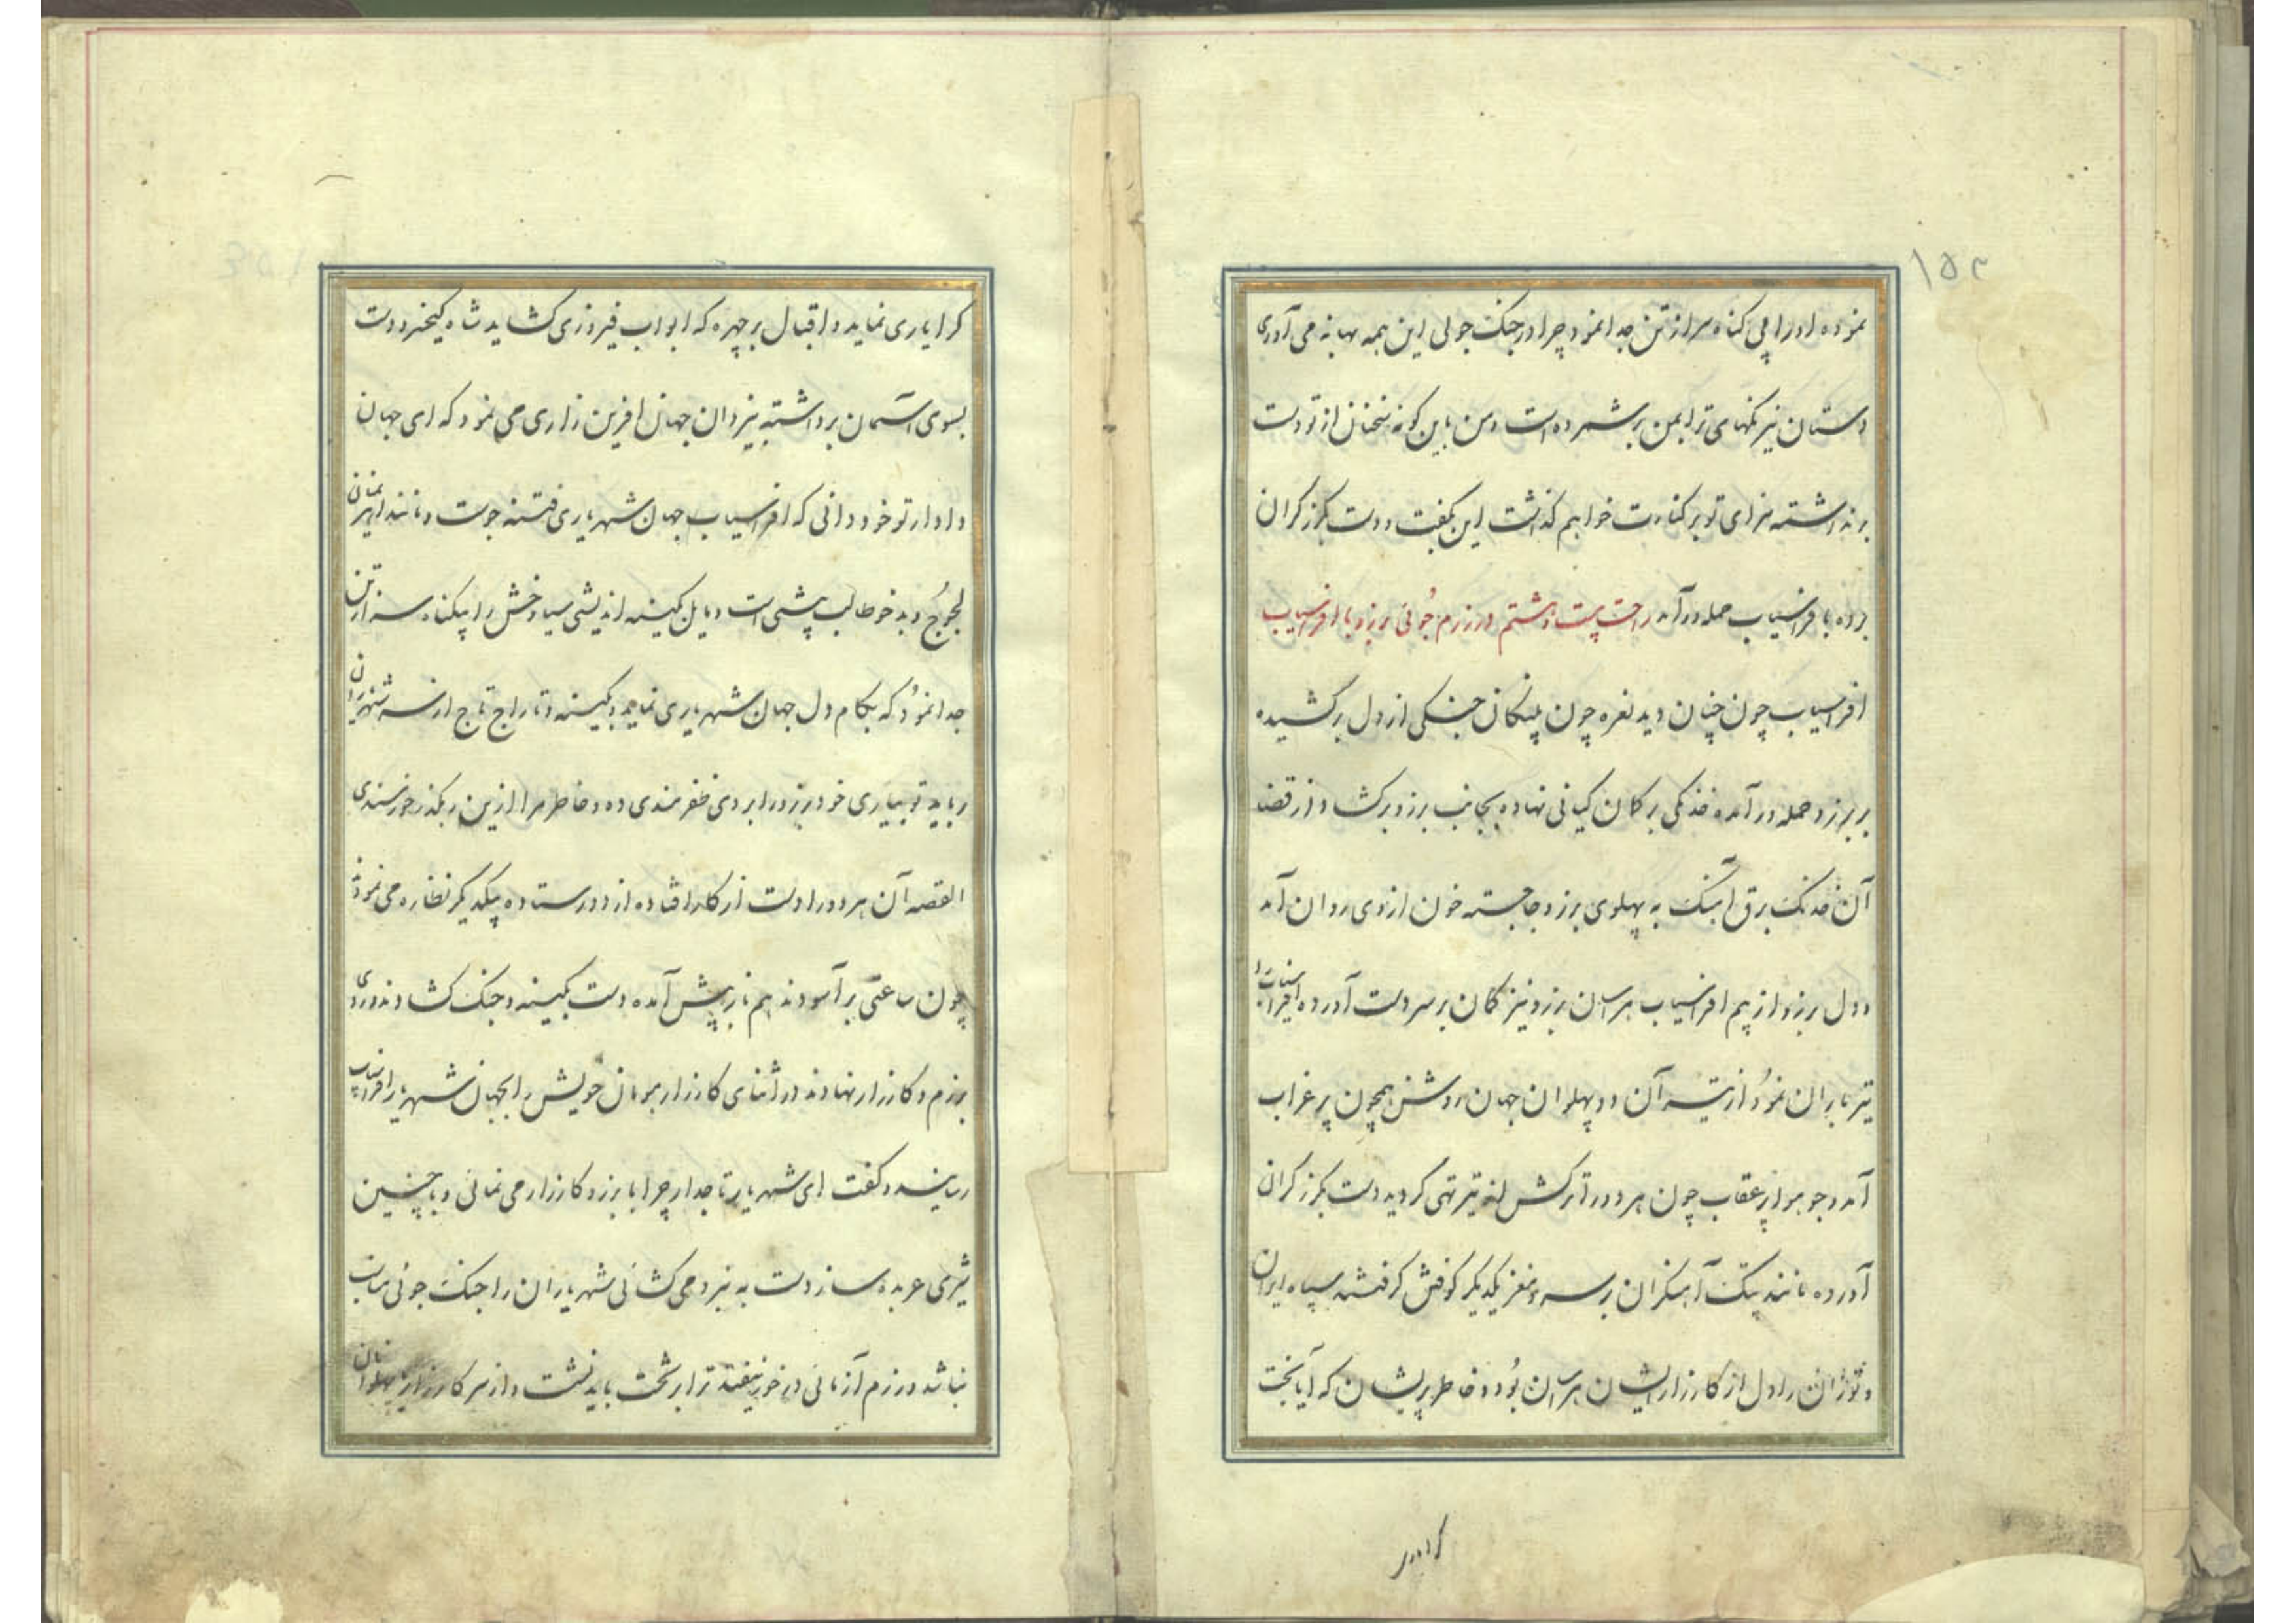 ۱۵۲
نموده او را بی کناه سر از تن جدا نمود چرا در جنک جوئی این همه بهانه می آوری
دستان نیرنکهای ترا بمن بر شمرده است و من باین کونه سخنان از تو دست
بر نداشته سزای تو بر کنارت خواهم کذاشت این بکفت و دست بکرز کران
برده بافراسیاب حمله درآمد راحت بیست و هشتم در رزم جوئی برزو با افراسیاب
افراسیاب چون چنان دید نعره چون پلنکان جنکی از دل برکشیده
بر برزو حمله در آمده خدنکی بر کمان کیانی نهاده بجانب برزو بر کشاد از قضا
آن خدنک برق آهنک به پهلوی برزو جا جسته خون از وی روان آمد
و دل برزو از بیم افراسیاب هراسان برزو نیز کمان بر سر دست آورده افراسیاب را
تیر باران نمود از تیر آن دو پهلوان جهان روشن همچون پر غراب
آمد و جو هوا پر عقاب چون هر دو را ترکش از تیر تهی کردید دست بکرز کران
آورده مانند پتک آهنکران بر سر و مغز یکدیکر کوفتن کرفتند سپاه ایران
و توران را دل از کارزار ایشان هراسان بود و خاطر پریشان که آیا بخت
کرا یاری نماید و اقبال بر چهره که ابواب فیروزی کشاید شاه کیخسرو دست
بسوی آسمان برداشته بیزدان جهان افرین زاری می نمود که ای جهان
دادار تو خود دانی که افراسیاب جهان شهریاری فتنه جوست و مانند اهریمنان
لجوج و بدخو طالب بیشی است و یا بل کینه اندیشی سیاوخش را بیکناه سر از تن
جدا نمود که بکام دل جهان شهریاری نماید و بکینه و تاراج تاج از سر شهریاران
رباید تو بیاری خود برزو را بر وی ظفرمندی ده و خاطر مرا ازین رهکذر خورسندی
القصه آن هر دو را دست از کار افتاده از دور ستاده بیکدیکر نظاره می نمودند
چون ساعتی بر آسودند هم باز پیش آمده دست بکینه و جنک کشادند و روی
برزم و کارزار نهادند در اثنای کارزار هومان خویش را بجهان شهریار افراسیاب
رسانیده و کفت ای شهریار تاجدار چرا با برزو کارزار می نمائی و با چنین
شیری عربده ساز دست به نبرد می کشائی شهریاران را جنک جوئی مناسب
نباشد و رزم آزمائی در خور نیفتد ترا بر تخت باید نشست و از سر کارزار پهلوانان